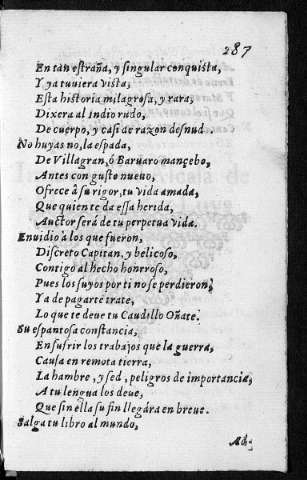 287
En tan estraña, y singular conquista,
Y ya tuuiera vista,
Esta historia milagrosa, y rara,
Dixera al Indio rudo,
De cuerpo, y casi de razon desnud
No huyas no, la espada,
De Villagran, ò Baruaro mançebo,
Antes con gusto nueuo,
Ofrece â su rigor, tu vida amada,
Que quien te da essa herida,
Auctor será de tu perpetua vida.
Enuidio â los que fueron,
Discreto Capitan, y belicoso,
Contigo al hecho honrroso,
Pues los suyos por ti no se perdieron,
Ya de pagarte trate,
Lo que te deue tu Caudillo Oñate.
Su espantosa constancia,
En sufrir los trabajos que la guerra,
Causa en remota tierra,
La hambre, y sed, peligros de importancia,
A tu lengua los deue,
Que sin ella su fin llegára en breue.
Salga tu libro al mundo,